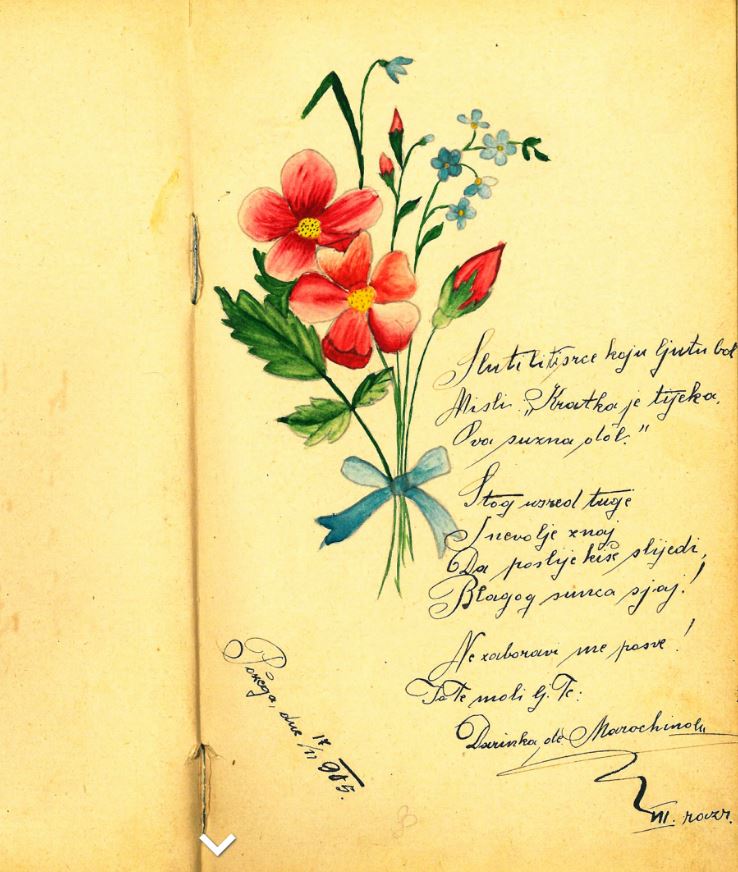 Sluti liti srce koju ljutu bol
Misli: „Kratka je tijeka,
Ova suzna dôl."
Stog usred tuge
I nevolje znaj
Da poslije kiše slijedi,
Blagog sunca sjaj!
Ne zaboravi me posve!
To Te moli lj. Te:
Darinka de Marochino
VII. razr.
Požega, dne 17/II 905.